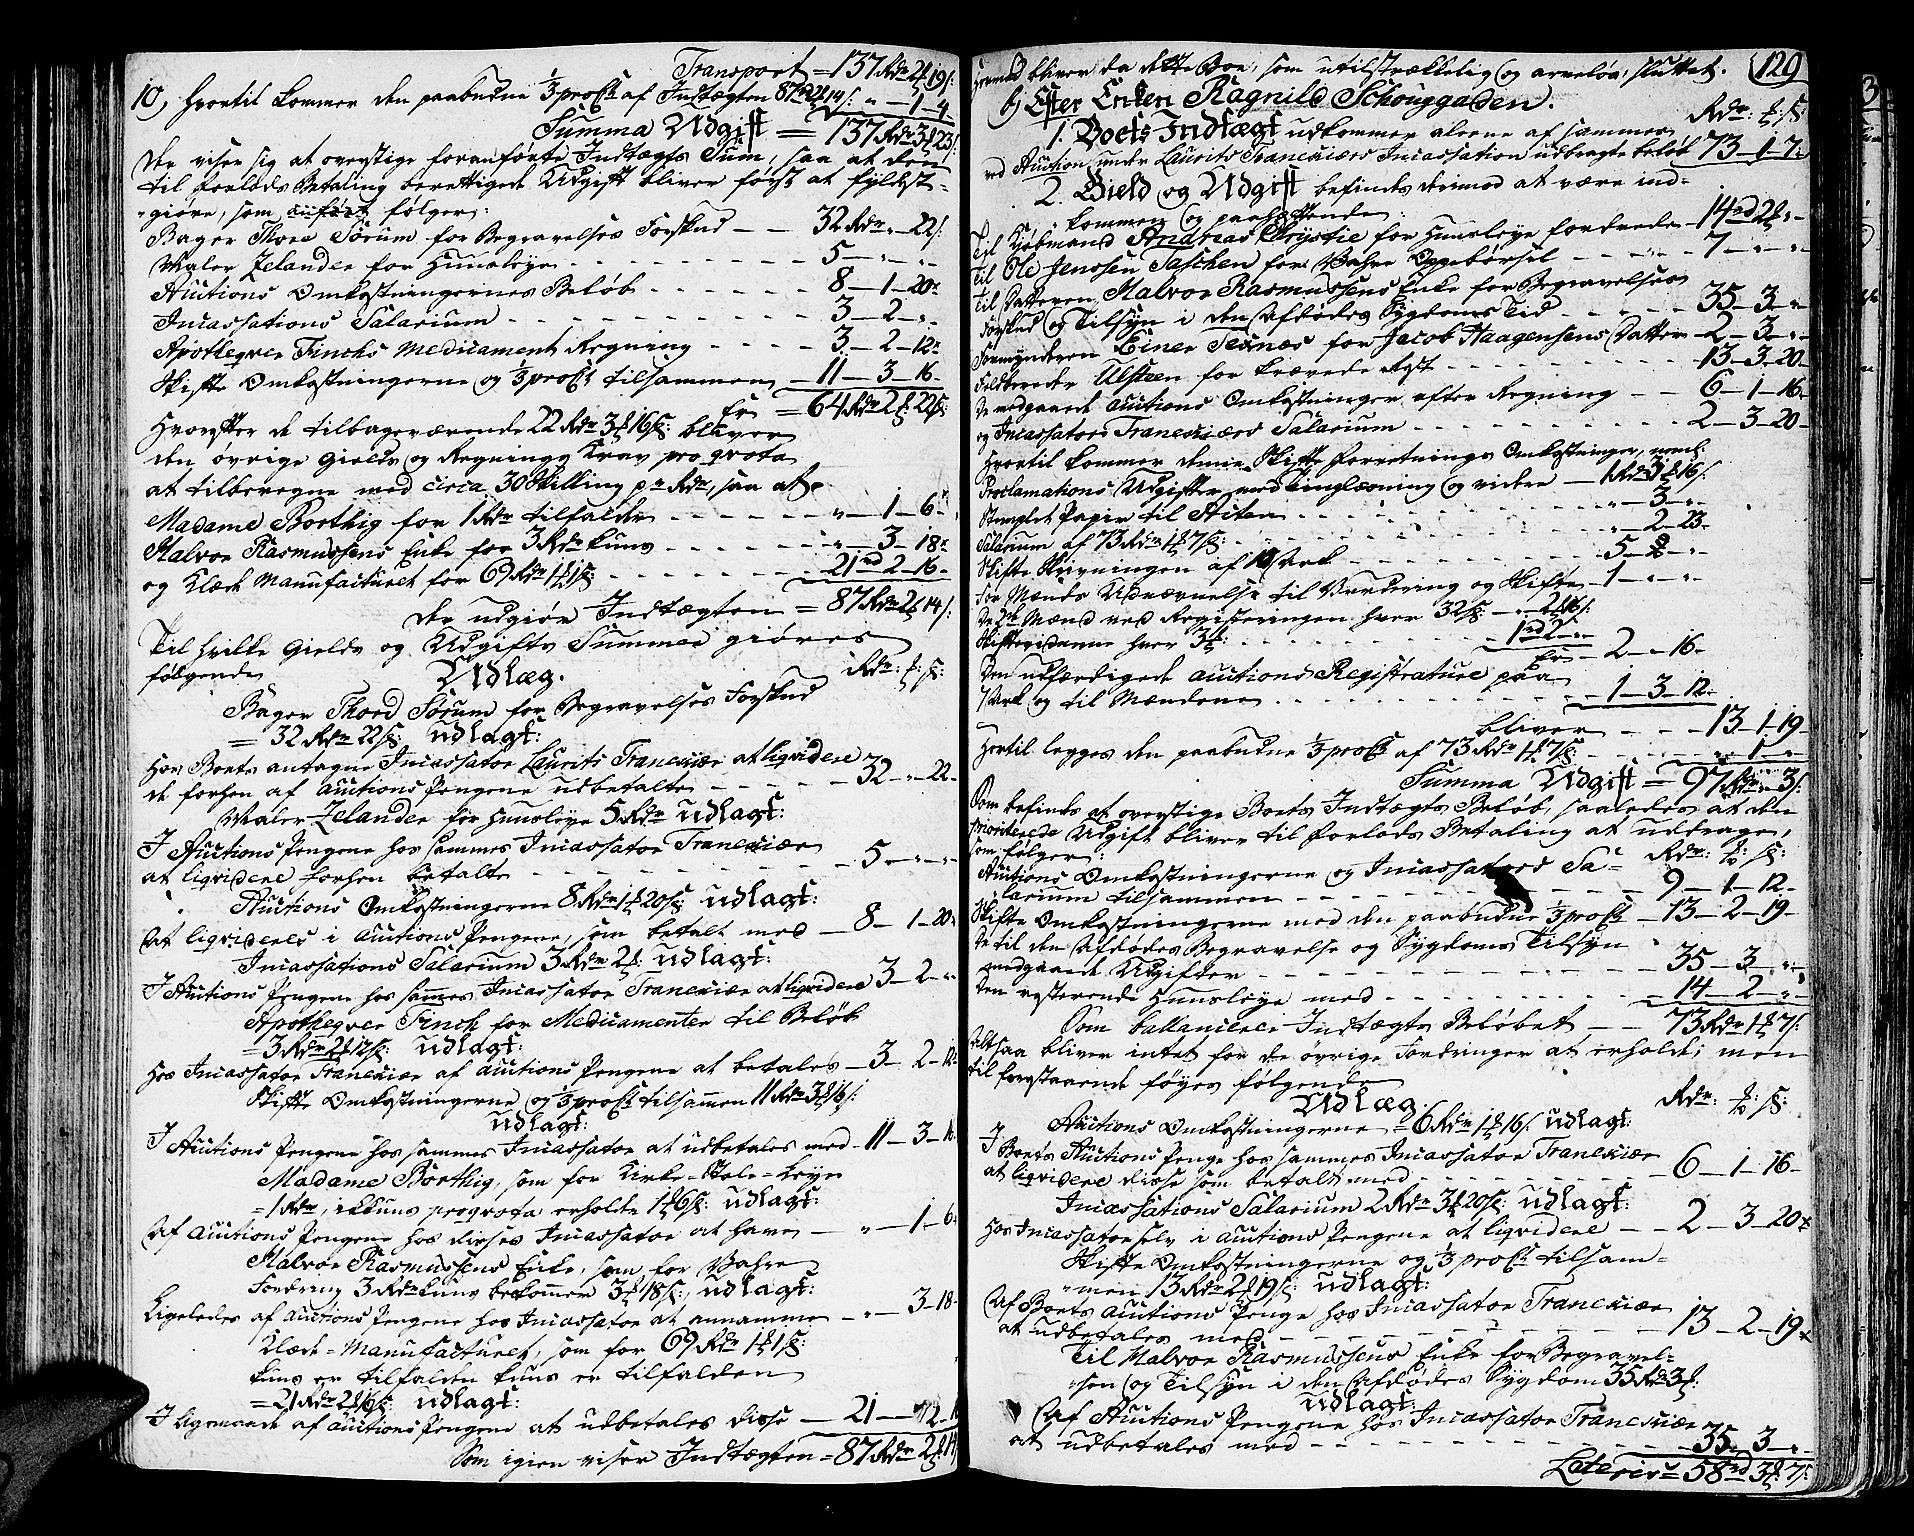 Transport = 137 Rdr 2 ƒ 19 ß:
10, Hvortil kommer den paabudne 1/3 proCt af Indtægten 87 rd 2 ƒ 14 ß: " – 1 – 4
Summa Udgift = 137 Rdr 3 ƒ 23 ß:
Der viser sig at overstige foranførte Indtægts Sum, saa at den
til forlods Betaling berettigede Udgift bliver først at fyldest-
giøre, som følger:
Bager Thore Sørum for Begravelses Forskud – – 32 Rdr " 22 ß:
Maler Zelander for Huusleye - - - - - - - 5 – " – "
Auctions Omkostningernes Beløb - - - - - - 8 – 1 – 20
Incassations Salarium - - - - - - - - - 3 – 2 – "
Apotheqver Finchs Medicament Regning - - - - 3 – 2 – 12
Skifte Omkostningerne og 1/3 proCt tilsammen – 11 – 3 – 16
Er = 64 Rdr 2 ƒ 22 ß:
Hvorefter de tilbageværende 22 Rdr 3 ƒ 16 ß: bliver
den øvrige Gields og Regnings Krav pro qvota
at tilberegne med circa 30 Skilling pr Rdr, saa at
Madame Borthig for 1 Rdr tilfalder - - - - - " – 1 – 6
Halvor Rasmussens Enke for 3 Rdr kuns - - - - - " – 3 – 18
og Klæde Manufacturet for 69 Rdr 1 ƒ 1 ß: - - - - 21 rd 2 – 16
Der udgiør Indtægten = 87 Rdr 2 ƒ 14 ß:
Til hvilke Gields og Udgifts Summer giøres
følgende
Udlæg. Rdr: ƒ: ß:
Bager Thord Sørum for Begravelses Forskud
= 32 Rdr 22 ß: udlagt:
Hos Boets antagne Incassator Laurits Franckiær at liqvidere
de forhen af Auctions Pengene udbetalte - - - - 32 – " – 22
Maler Zelander for Huusleye 5 Rdr udlagt:
I Auctions Pengene hos sammes Incassator Franckiær
at liqvidere forhen betalte - - - - - - 5 – " – "
Auctions Omkostningerne 8 Rdr 1 ƒ 20 ß: udlagt:
At liqvideres i Auctions Pengene, som betalt med – 8 – 1 – 20
Incassations Salarium 3 Rdr 2 ƒ: udlagt:
I Auctions Pengene hos sammes Incassator Franckiær at liqvidere 3 – 2 – "
Apotheqver Finch for Medicamenter til Beløb
= 3 Rdr 2 ƒ 12 ß: udlagt:
Hos Incassator Franckiær af Auctions Pengene at betales – 3 – 2 – 12
Skifte Omkostningerne og 1/3 proCt tilsammen 11 Rdr 3 ƒ 16 ß:
udlagt:
I Auctions Pengene hos sammes Incassator at udbetales med – 11 – 3 – 16
Madame Borthig, som for Kirke-Stole-Leye
= 1 Rdr, ikkuns pro qvota erholder 1 ƒ 6 ß: udlagt:
Af Auctions Pengene hos disses Incassator at have – " – 1 – 6
Halvor Rasmussens Enke, som for Vahre
Fordring 3 Rdr kuns bekommer 3 ƒ 18 ß:, udlagt:
Ligeledes af Auctions Pengene hos Incassator at annamme – " – 3 – 18
Klæde-Manufacturet, som for 69 Rdr 1 ƒ 1 ß:
kuns er tilfalden kuns er tilfalden
= 21 Rdr 2 ƒ 16 ß: udlagt:
I ligemaade af Auctions Pengene at udbetales disse – 21 – 2 – 16
Som igien viser Indtægten = 87 Rdr 2 ƒ 14
Hermed bliver da dette Boe, som utilstrækkelig og arveløs, sluttet. 129
b) Efter Enken Ragnild Schouggaden.
1. Boets Indtægt udkommer aleene af sammes Rdr: ƒ: ß
ved Auction under Laurits Franckiærs Incassation udbragte beløb 73 – 1 – 7
2. Gield og Udgift befindes derimod at være ind-
kommen og paahæftende:
Til Kjøbmand Andreas Chrystie for Huusleye fordrede – 14 rd 2 ƒ "
Til Ole Jenssen Taschen for Vahre Oppebørsel - - - - 7 – " – "
Til Datteren, Halvor Rasmussens Enke for Begravelses
Forskud og Tilsyn i den Afdødes Sygdoms Tid - - - - 35 – 3 – "
Formynderen Einer Texnæs for Jacob Haagensens Datter – 2 – 3 – "
Feldbereder Ulsteen for krævede Rest - - - - 13 – 3 – 20
De medgaaede Auctions Omkostninger efter Regning - - 6 – 1 – 16
og Incassator Franckiærs Salarium - - - - - - 2 – 3 – 20
Hvortil kommer denne Skifte Forretnings Omkostninger, neml:
Proclamations Udgifter med tinglæsning og videre – 1 Rdr 3 ƒ 16 ß:
Stemplet Papir til Acten - - - - - - - " – 3 – "
Salarium af 73 Rdr 1 ƒ 7 ß: - - - - - - " – 2 – 23
Skifte Skrivningen af Ark - - - - - 5 – "
For Mænds Udnævnelse til Vurdering og Skifte – 1 – " – "
De 2de Mænd ved Registeringen hver 32 ß: – " – 2 ƒ 16 ß:
Skiftevidnerne hver 3 ƒ: - - - - - 1 rd 2 – "
Er 2 – " – 16
Den udfærdigede Auctions Registrature paa
7 Ark og til Mændene - - - - - - 1 – 3 – 12
bliver - - - 13 – 1 – 19
Hertil legges den paabudne 1/3 proCt af 73 Rdr 1 ƒ 7 ß: - - " – 1 – "
Summa Udgift = 97 Rdr " 3 ß:
Som befindes at overstige Boets Indtægts Beløb, saaledes at den
prioriterede Udgift bliver til forlods Betaling at uddrage,
som følger: Rdr: ƒ: ß:
Auctions Omkostningerne og Incassators Sa-
larium tilsammen - - - - - - - - 9 – 1 – 12
Skifte Omkostningerne med den paabudne 1/3 proCt – 13 – 2 – 19
De til den Afdødes Begravelse og Sygdoms Tilsyn
medgaaede Udgifter - - - - - - - 35 – 3 – "
Den resterende Huusleye med - - - - - - 14 – 2 – "
Som ballancerer Indtægts Beløbet - - 73 Rdr 1 ƒ 7 ß:
Altsaa bliver intet for de øvrige Fordringer at erholde; men
til forestaaende føyes følgende
Udlæg. Rdr: ƒ: ß:
Auctions Omkostningerne = 6 Rdr 1 ƒ 16 ß: udlagt:
I Boets Auctions Penge hos sammes Incassator Franckiær
at liqvidere disse som betalt med - - - - - 6 – 1 – 16
Incassations Salarium 2 Rdr 3 ƒ 20 ß: udlagt:
Hos Incassator selv i Auctions Pengene at liqvidere - - 2 – 3 – 20
Skifte Omkostningerne og 1/3 proCt tilsam-
men 13 Rdr 2 ƒ 19 ß: udlagt:
Af Boets Auctions Penge hos Incassator Franckiær
at udbetales med - - - - - - - - 13 – 2 – 19
Til Halvor Rasmussens Enke for Begravel-
sen og Tilsyn i den Afdødes Sygdom 35 Rdr 3 ƒ:
udlagt:
Af Auctions Pengene hos Incassator Franckiær
at udbetales med - - - - - - - - 35 – 3 – "
Lateris = 58 rd 3 ƒ 7 ß: